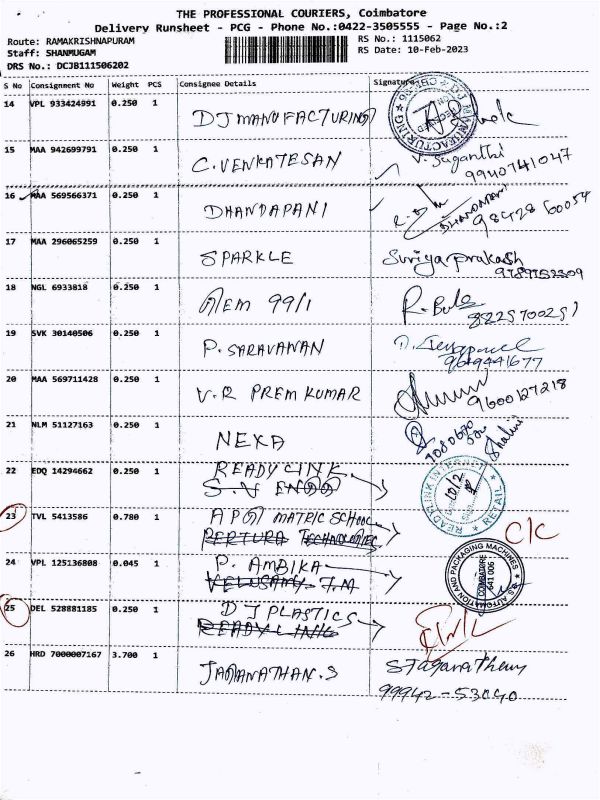 THE PROFESSIONAL COURIERS, Coimbatore
Delivery Runsheet - PCG - Phone No.:0422-3505555 - Page No.:2
Route: RAMAKRISHNAPURAM RS No.: 1115062
Staff: SHANMUGAM RS Date: 10-Feb-2023
DRS No.: DCJB111506202
S No Consignment No Weight PCS Consignee Details Signature
14 VPL 933424991 0.250 1 DJ MANUFACTURING
15 MAA 942699791 0.250 1 C. VENKATESAN V. Suganthi
9940741047
16 MAA 569566371 0.250 1 DHANDAPANI
17 MAA 296065259 0.250 1 SPARKLE Suriyaprakash
18 NGL 6933818 0.250 1 99/1 R. Bala
19 SVK 30140506 0.250 1 P. SARAVANAN
9629441677
20 MAA 569711428 0.250 1 V.R PREM KUMAR 9600127218
21 NLM 51127163 0.250 1 NEXA Shalini
22 EDQ 14294662 0.250 1 READYLINK
23 TVL 5413586 0.780 1 MATRIC SCHOOL C/C
PERTURA TECHNOLOGIES
24 VPL 125136808 0.045 1 P. AMBIKA COIMBATORE 641 006
VELUSAMY T.M
25 DEL 528881185 0.250 1 DJ PLASTICS
READYLINK
26 HRD 7000007167 3.700 1 JAGANATHAN.S
99942-53040